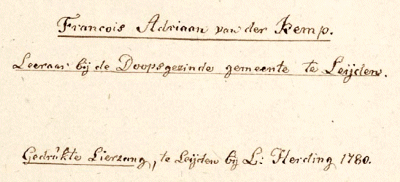 Francois Adriaan van der Kemp.
Leeraar bij de Doopsgezinde gemeente te Leijden.
Gedrukte Lierzang, te Leijden bij L: Herding 1780.